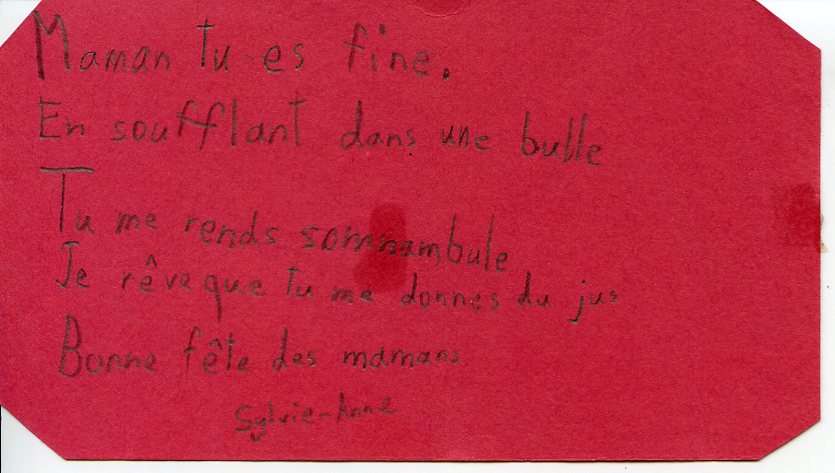 Maman tu es fine.
En soufflant dans une bulle
Tu me rends somnambule
Je rêve que tu me donnes du jus
Bonne fête des mamans
Sylvie-Anne